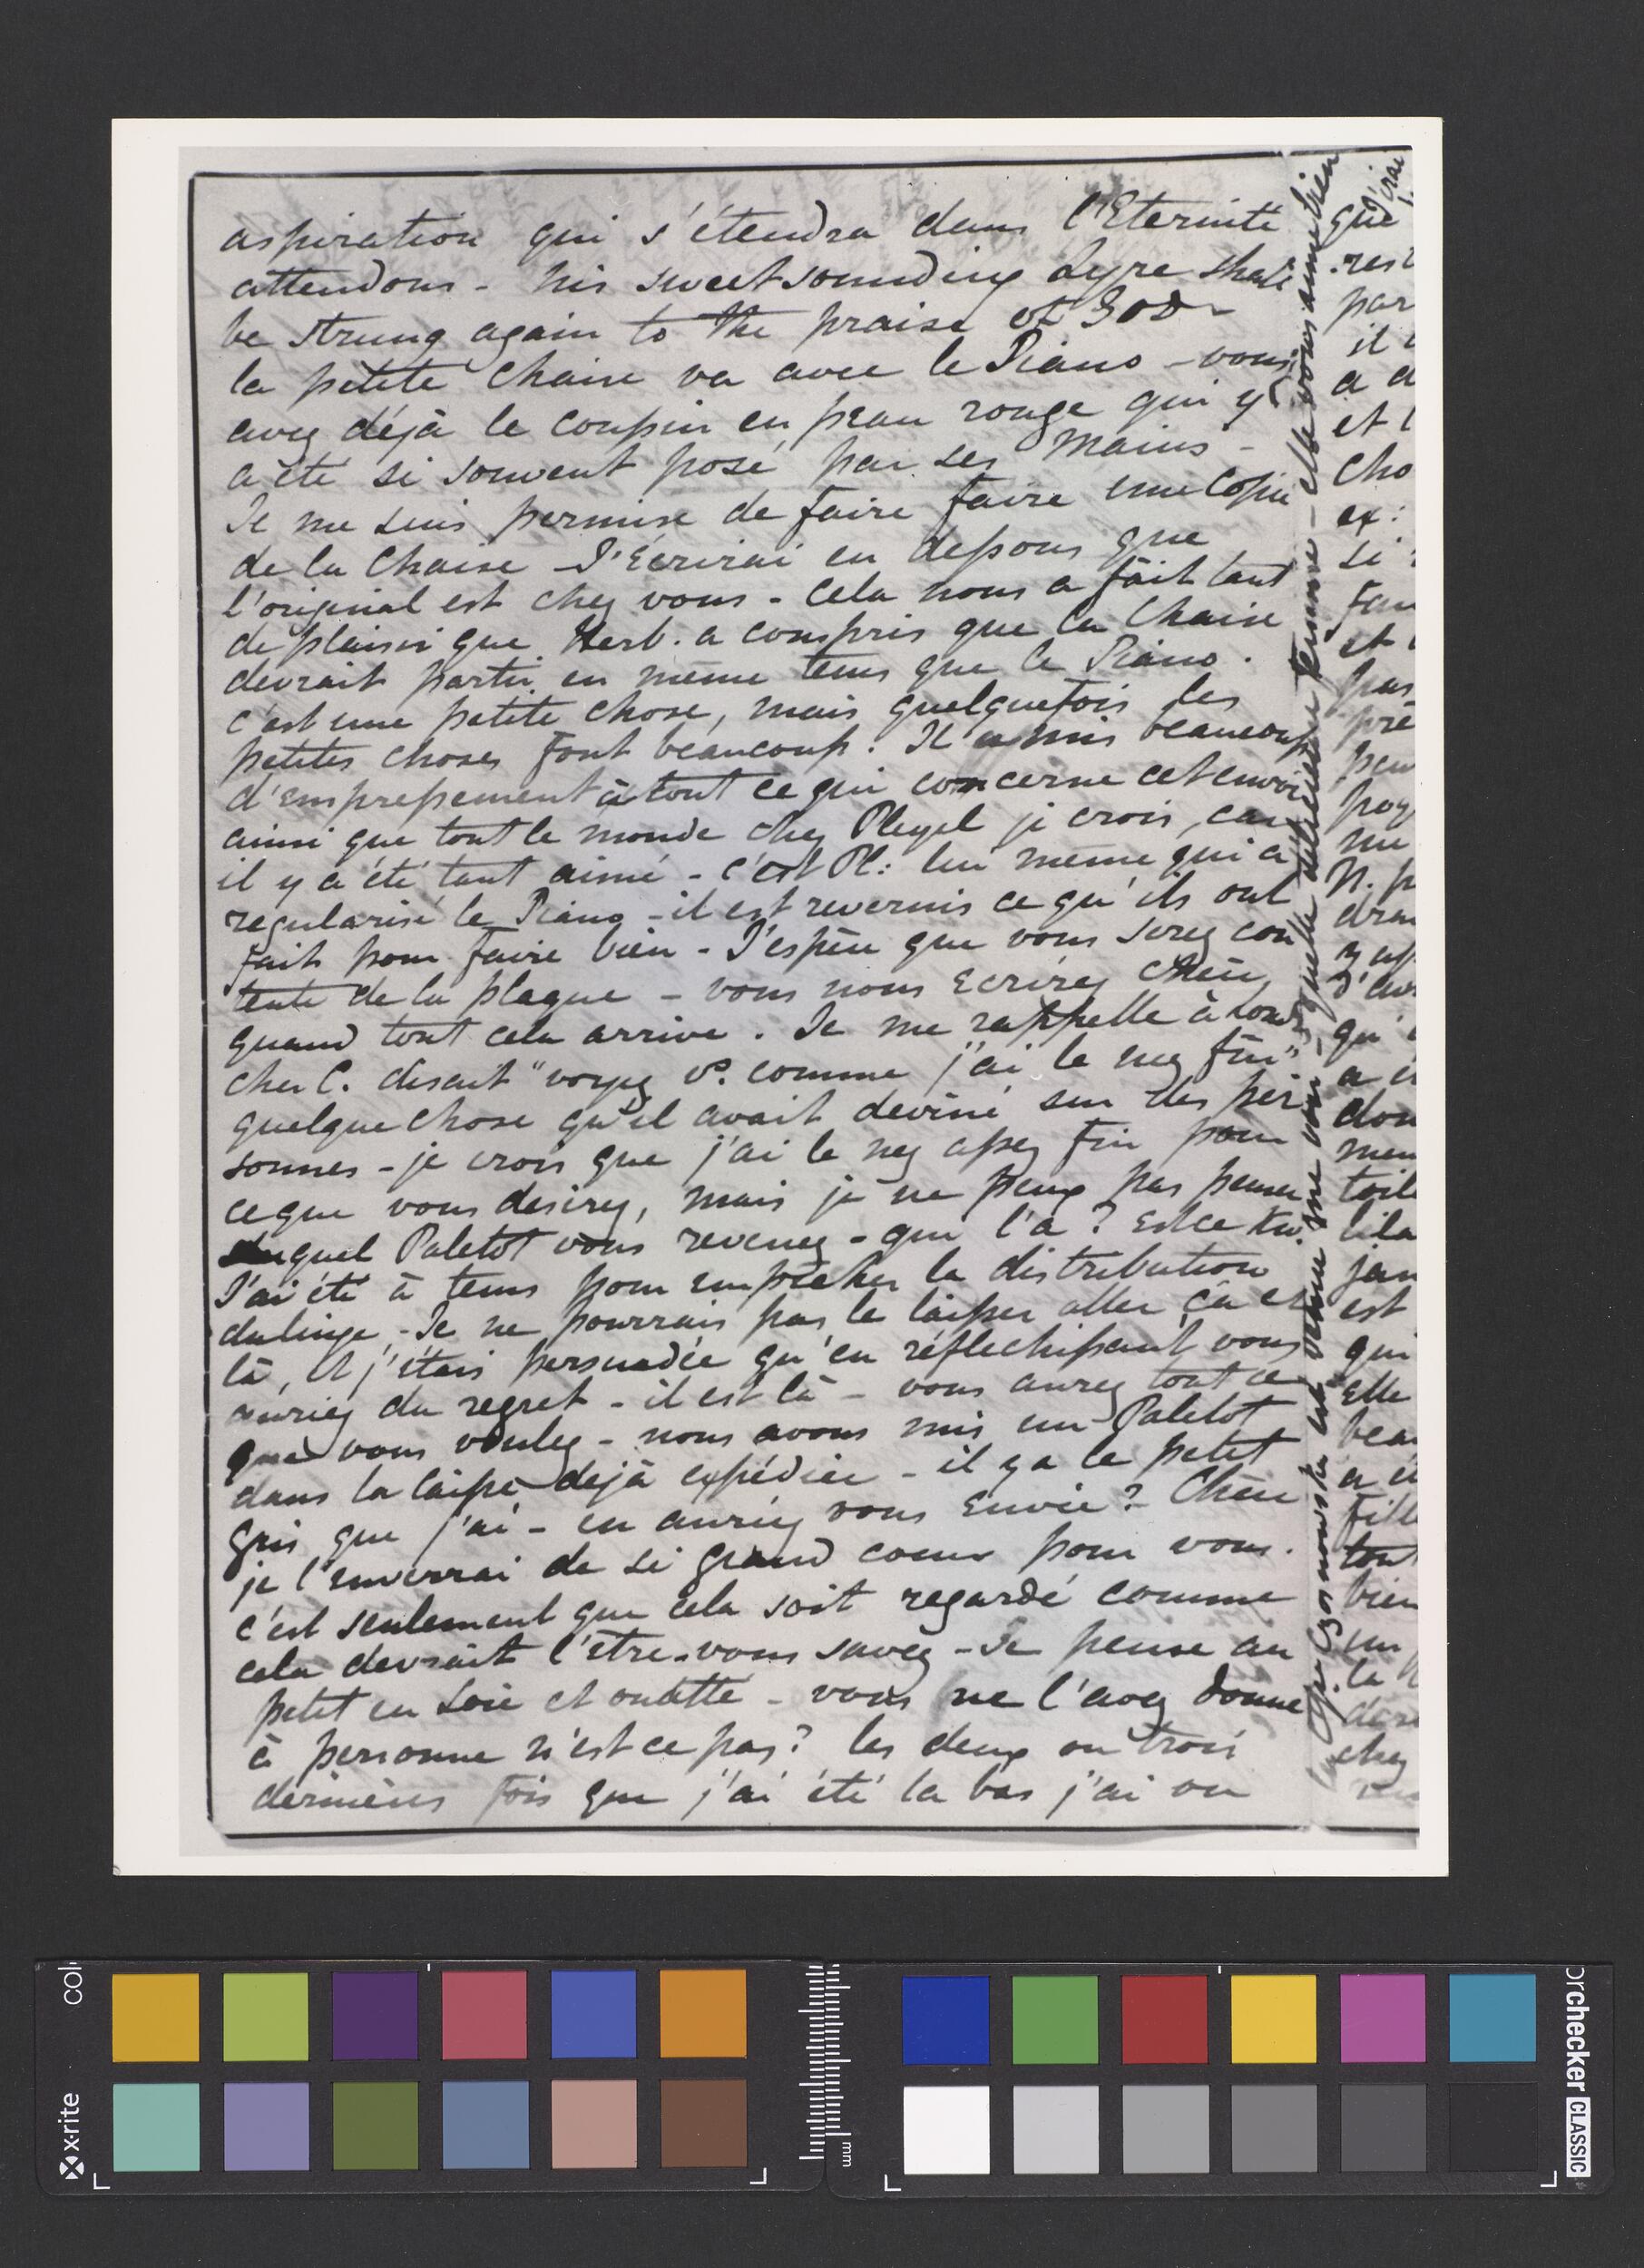 aspiration qui s'étendra dans l'Eternité
attendons - his sweet sounding Lyre shall
be strung again to the praise of God -
la petite Chaise va avec le Piano - vous
avez déjà le coussin en peau rouge qui y
a été si souvent posé par ses Mains -
Je me suis permise de faire faire une Copie
de la Chaise - J'Ecrirai en dessous que
l'original est chez vous - Cela nous a fait tant
de plaisir que Herb. a compris que la Chaise
devrait partir en même tems que le Piano.
c'est une petite chose, mais quelquefois les
petites choses font beaucoup. Il a mis beaucoup
d'empressement à tout ce qui concerne cet envoi
ainsi que tout le monde chez Pleyel je crois, car
il y a été tant aimé - c'est Pl: lui même qui a
regularisé le Piano - il est revernis ce qu'ils ont
fait pour faire bien - J'espère que vous serez con
tente de la plaque - vous nous Ecrirez Chère
quand tout cela arrive. Je me rappelle à Lond
cher C. disait "voyez vs. comme j'ai le nez fin"
quelque chose qu'il avait deviné sur des per
sonnes - je crois que j'ai le nez assez fin pour
ce que vous desirez, mais je ne peux pas penser
duquel Paletot vous revenez - qui l'a? Est ce Kw.
J'ai été à tems pour empêcher la distribution
du linge, - Je ne pourrais pas le laisser aller çà et
là, et j'étais persuadée qu'en réflechissant vous
auriez du regret - il est là - vous aurez tout ce
que vous voulez - nous avons mis un Paletot
dans la caisse dejà expédiée - il y a le petit
gris que j'ai - en auriez vous Envie? Chère
je l'enverrai de si grand coeur pour vous.
c'est seulement que cela soit regardé comme
cela devrait l'être - vous savez - Je pense au
petit en Soie et ouatté - vous ne l'avez donné
à personne n'est ce pas? les deux ou trois
dernières fois que j'ai été la bas j'ai vu
est venue me voir - quelle délicieuse femme - elle vous aime bien
J'irai
que
rest
par
il
a
et
Cho
ex:
si
et
pas
pré
peu
pay
N. p
qu'
a
don
men
toil
lila
jan
est
qui
Elle
bea
a
fill
tout
bien
un
la
chez